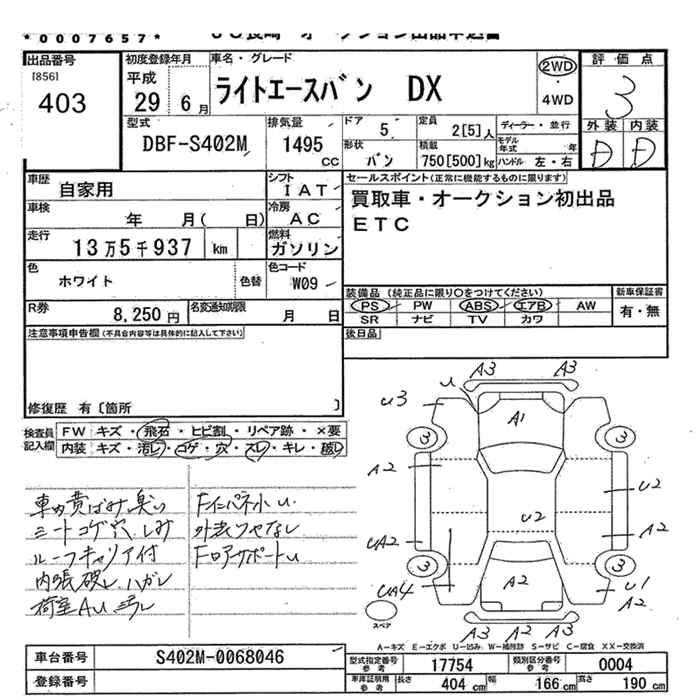 *0007657*
出品番号
[856]
403
初度登録年月
平成
29年 6月
車名・グレード
ライトエースバン DX
2WD
・
4WD
評価点
3
外装 内装
D D
型式
DBF-S402M
排気量
1495
CC
ドア
5
定員
2[5]人
ディーラー・並行
モデル年式 年
形状
バン
積載
750[500]kg
ハンドル 左・右
車歴
自家用
シフト
IAT
セールスポイント(正常に機能するものに限ります)
買取車・オークション初出品
ETC
車検
年 月( 日)
冷房
AC
走行
13万5千937 km
燃料
ガソリン
色
ホワイト
色替
色コード
W09
装備品 (純正品に限り○をつけてください)
新車保証書
PS PW ABS エアB AW
SR ナビ TV カワ
有・無
R券
8,250円
名変通知期限
月 日
注意事項申告欄(不具合内容等は具体的に記入して下さい)
後日品
修復歴 有〔箇所 〕
検査員記入欄
FW キズ・飛石・ヒビ割・リペア跡・×要
内装 キズ・汚レ・コゲ・穴・スレ・キレ・破レ
車内黄ばみ、臭い
シートコゲ穴、しみ
ルーフキャリア付
内張破レ、ハガレ
荷室AU、
FインパネホU
外装ツヤなし
FロアサポートU
A3 A3
U
U3
A1
3 3
A2 A2
U2
U2
UA2 A2
3 3
UA4 A2 U1
A2
A3 A3
A2
スペア
A-キズ E-エクボ U-凹み W-補修跡 S-サビ C-腐食 XX-交換済
車台番号
S402M-0068046
登録番号
型式指定番号
参考
17754
類別区分番号
参考
0004
車庫証明用
参考
長さ 404 cm 幅 166 cm 高さ 190 cm